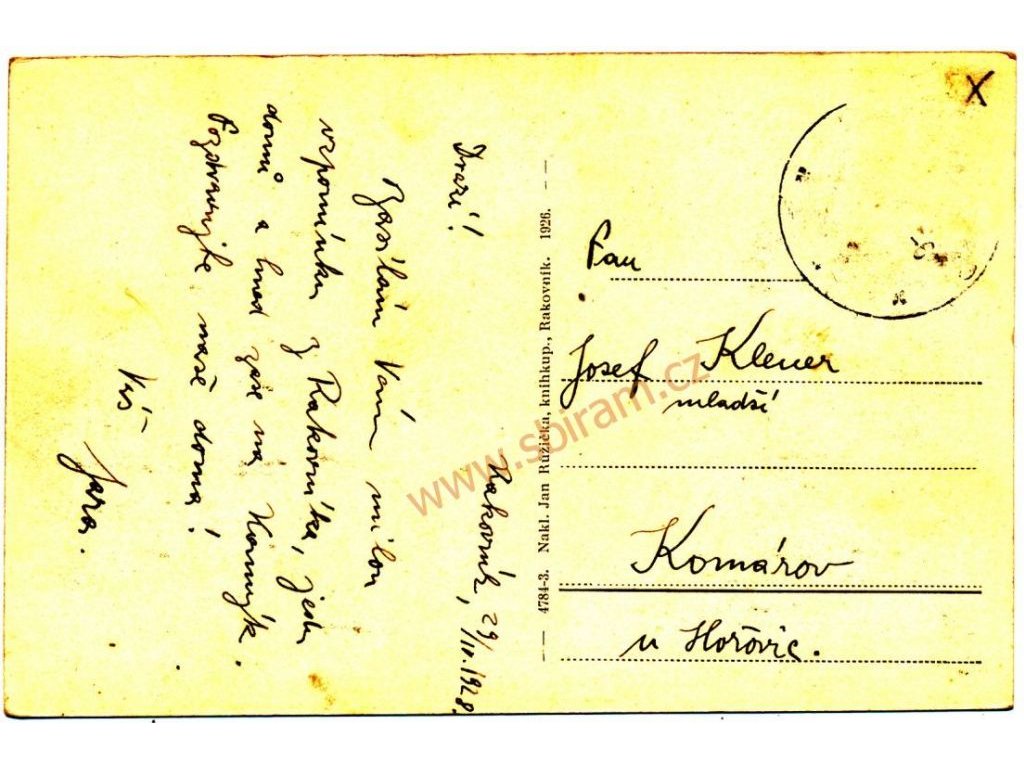 Rakovník, 29/IV. 1928.
Drazí!
Zasílám Vám milou
vzpomínku z Rakovníka, jedu
domů a hned zase na Kamýk.
Pozdravujte naše doma!
Váš
Jara.
4784-3. Nakl. Jan Růžička, knihkup., Rakovník. 1926.
Pan
Josef Klener
mladší
Komárov
u Hořovic.
X
www.sbiram.cz